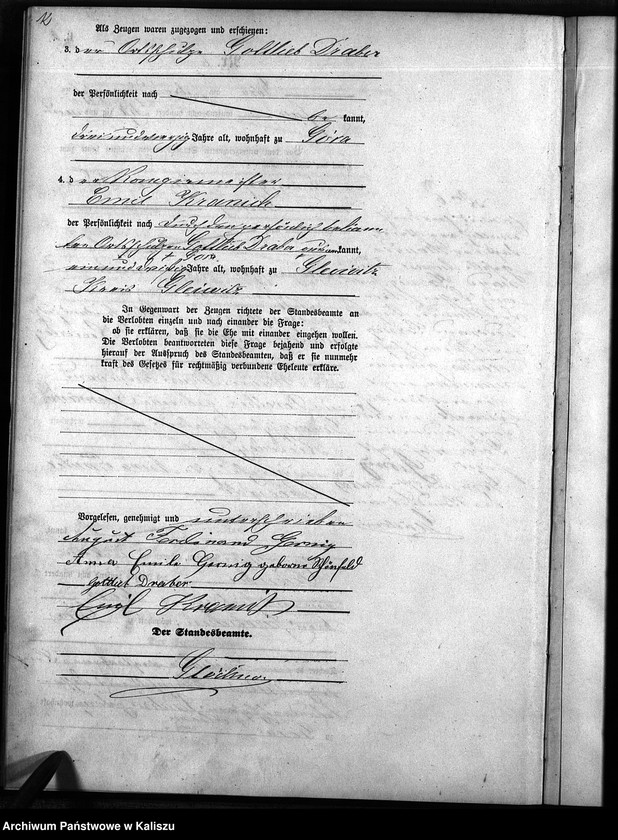 12
Als Zeugen waren zugezogen und erschienen:
3. der Ortsschulze Gottlieb Draber
der Persönlichkeit nach
be kannt,
drei und vierzig Jahre alt, wohnhaft zu Góra
4. der Rangiermeister
Emil Kranich
der Persönlichkeit nach durch den persönlich bekann
ten Ortsschulzen Gottlieb Draber aus kannt,
Góra
ein und dreißig Jahre alt, wohnhaft zu Gleiwitz
Kreis Gleiwitz
In Gegenwart der Zeugen richtete der Standesbeamte an
die Verlobten einzeln und nach einander die Frage:
ob sie erklären, daß sie die Ehe mit einander eingehen wollen.
Die Verlobten beantworteten diese Frage bejahend und erfolgte
hierauf der Ausspruch des Standesbeamten, daß er sie nunmehr
kraft des Gesetzes für rechtmäßig verbundene Eheleute erkläre.
Vorgelesen, genehmigt und unterschrieben
August Ferdinand Gernig
Anna Emilie Gernig geborne Schönfeld
Gottlieb Draber
Emil Kranich
Der Standesbeamte.
Archiwum Państwowe w Kaliszu